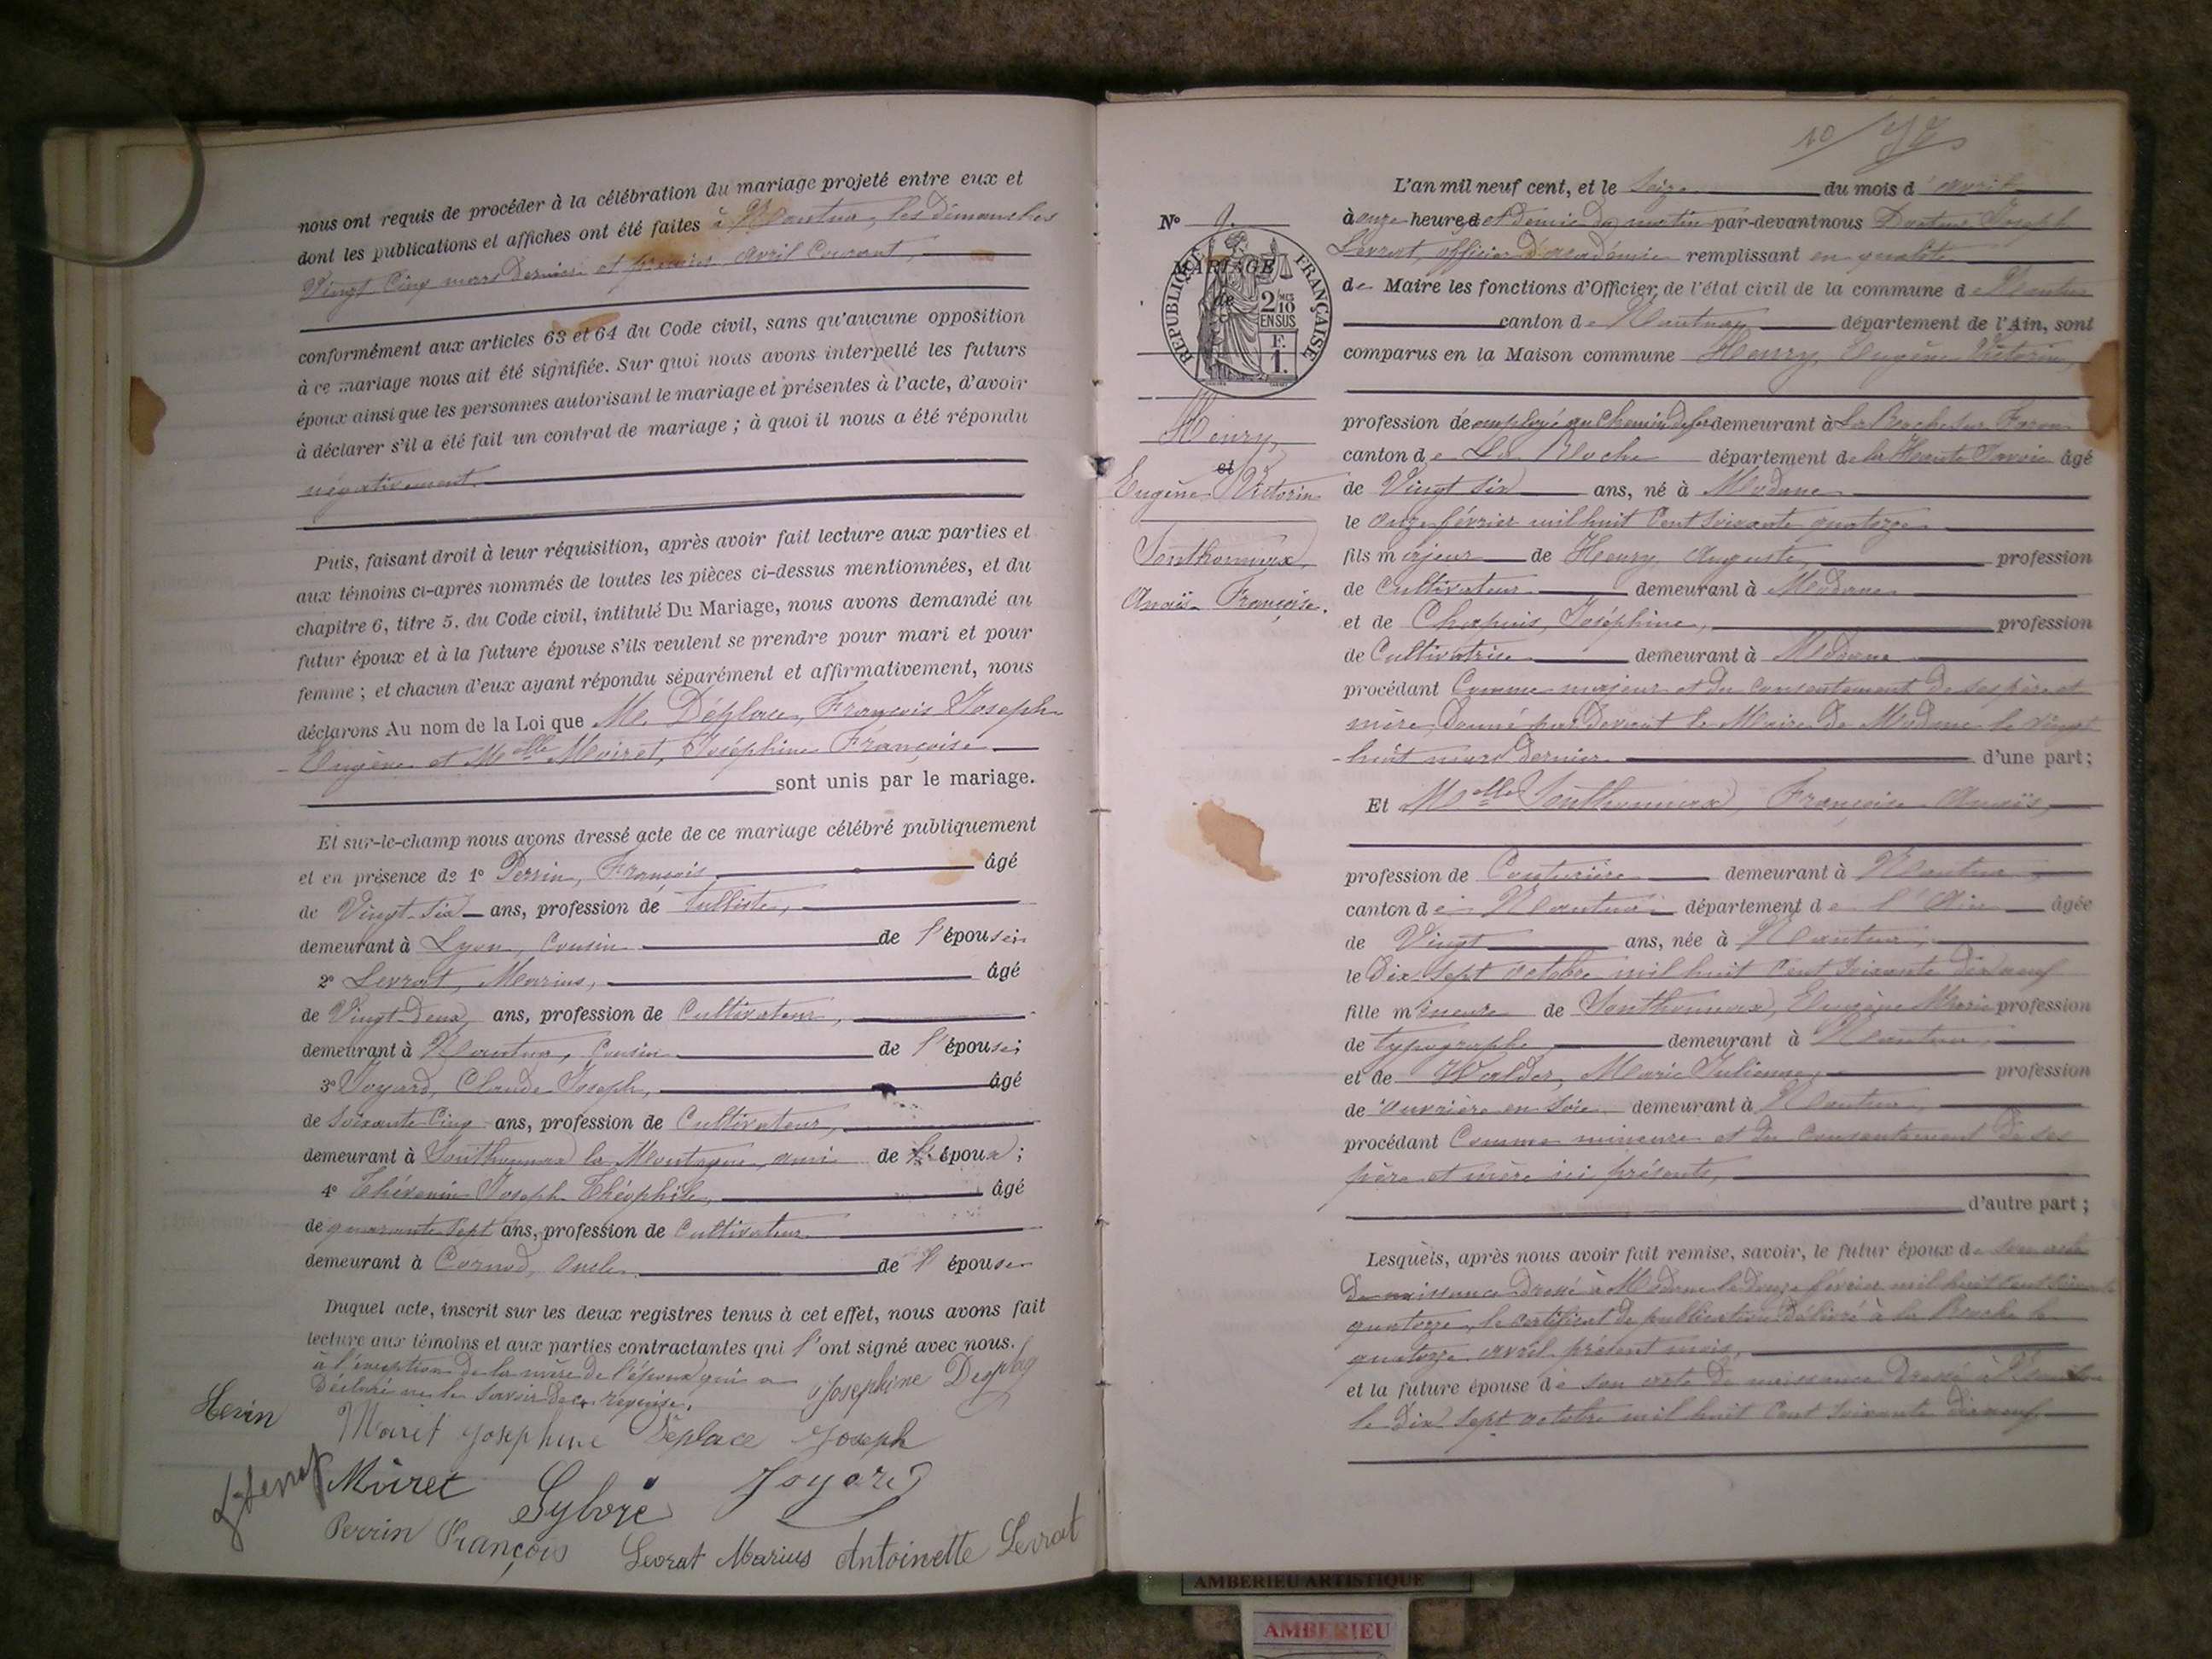 nous ont requis de procéder à la célébration du mariage projeté entre eux et
dont les publications et affiches ont été faites à Nantua, les dimanches
Vingt Cinq mars dernier et premier avril Courant,
conformément aux articles 63 et 64 du Code civil, sans qu'aucune opposition
à ce mariage nous ait été signifiée. Sur quoi nous avons interpellé les futurs
époux ainsi que les personnes autorisant le mariage et présentes à l'acte, d'avoir
à déclarer s'il a été fait un contrat de mariage ; à quoi il nous a été répondu
négativement.
Puis, faisant droit à leur réquisition, après avoir fait lecture aux parties et
aux témoins ci-après nommés de toutes les pièces ci-dessus mentionnées, et du
chapitre 6, titre 5. du Code civil, intitulé Du Mariage, nous avons demandé au
futur époux et à la future épouse s'ils veulent se prendre pour mari et pour
femme ; et chacun d'eux ayant répondu séparément et affirmativement, nous
déclarons Au nom de la Loi que Mr Déplace, François Joseph
Eugène et Melle Moiret, Joséphine Françoise
sont unis par le mariage.
Et sur-le-champ nous avons dressé acte de ce mariage célébré publiquement
et en présence de 1° Perrin, François, âgé
de Vingt-six ans, profession de Tulliste,
demeurant à Lyon, cousin de l'épouse;
2° Levrat, Marius, âgé
de Vingt-Deux ans, profession de Cultivateur,
demeurant à Nantua, Cousin de l'épouse;
3° Joyard, Claude Joseph, âgé
de soixante Cinq ans, profession de Cultivateur,
demeurant à Sonthonnax la Montagne, ami de l'époux ;
4° Thévenin Joseph Théophile, âgé
de quarante sept ans, profession de Cultivateur
demeurant à Cornod, oncle de l'épouse
Duquel acte, inscrit sur les deux registres tenus à cet effet, nous avons fait
lecture aux témoins et aux parties contractantes qui l'ont signé avec nous.
à l'exception de la mère de l'époux qui a
déclaré ne le savoir de ce requise.
Joséphine
Moiret Josephine Déplace Joseph
Moiret Sylvie Joyard
Perrin François Levrat Marius Antoinette Levrat
10
N° 9
MARIAGE
de
RÉPUBLIQUE FRANÇAISE
2/10 MES
EN SUS
F.
1.
Henry,
et
Eugène Victorin
Sonthonnax,
Anaïs Françoise.
L'an mil neuf cent, et le seize du mois d'avril
à onze heures et demie du matin par-devant nous Docteur Joseph
Levrat, officier d'académie remplissant en qualité
de Maire les fonctions d'Officier de l'état civil de la commune de Nantua
canton de Nantua département de l'Ain, sont
comparus en la Maison commune Henry, Eugène Victorin,
profession de employé au Chemin de fer demeurant à La Roche sur Foron
canton de La Roche département de la Haute Savoie âgé
de Vingt six ans, né à Modane
le onze février mil huit Cent soixante quatorze
fils majeur de Henry, Auguste, profession
de Cultivateur demeurant à Modane
et de Chapuis, Joséphine, profession
de Cultivatrice demeurant à Modane
procédant Comme majeur et du consentement de ses père et
mère, donné par devant le Maire de Modane le vingt
huit mars dernier d'une part ;
Et Melle Sonthonnax, Françoise Anaïs,
profession de Couturière demeurant à Nantua
canton de Nantua département de l'Ain âgée
de Vingt ans, née à Nantua,
le Dix sept octobre mil huit Cent soixante dix neuf
fille mineure de Sonthonnax, Eugène Marie profession
de typographe demeurant à Nantua
et de Walder, Marie Julienne, profession
de ouvrière en soie demeurant à Nantua,
procédant Comme mineure et du consentement de ses
père et mère ici présents,
d'autre part ;
Lesquels, après nous avoir fait remise, savoir, le futur époux de son acte
de naissance dressé à Modane le douze février mil huit cent soixante
quatorze, le certificat de publication délivré à La Roche le
quatorze avril présent mois,
et la future épouse de son acte de naissance dressé à Nantua
le Dix sept octobre mil huit Cent soixante dix neuf
AMBERIEU ARTISTIQUE
AMBERIEU